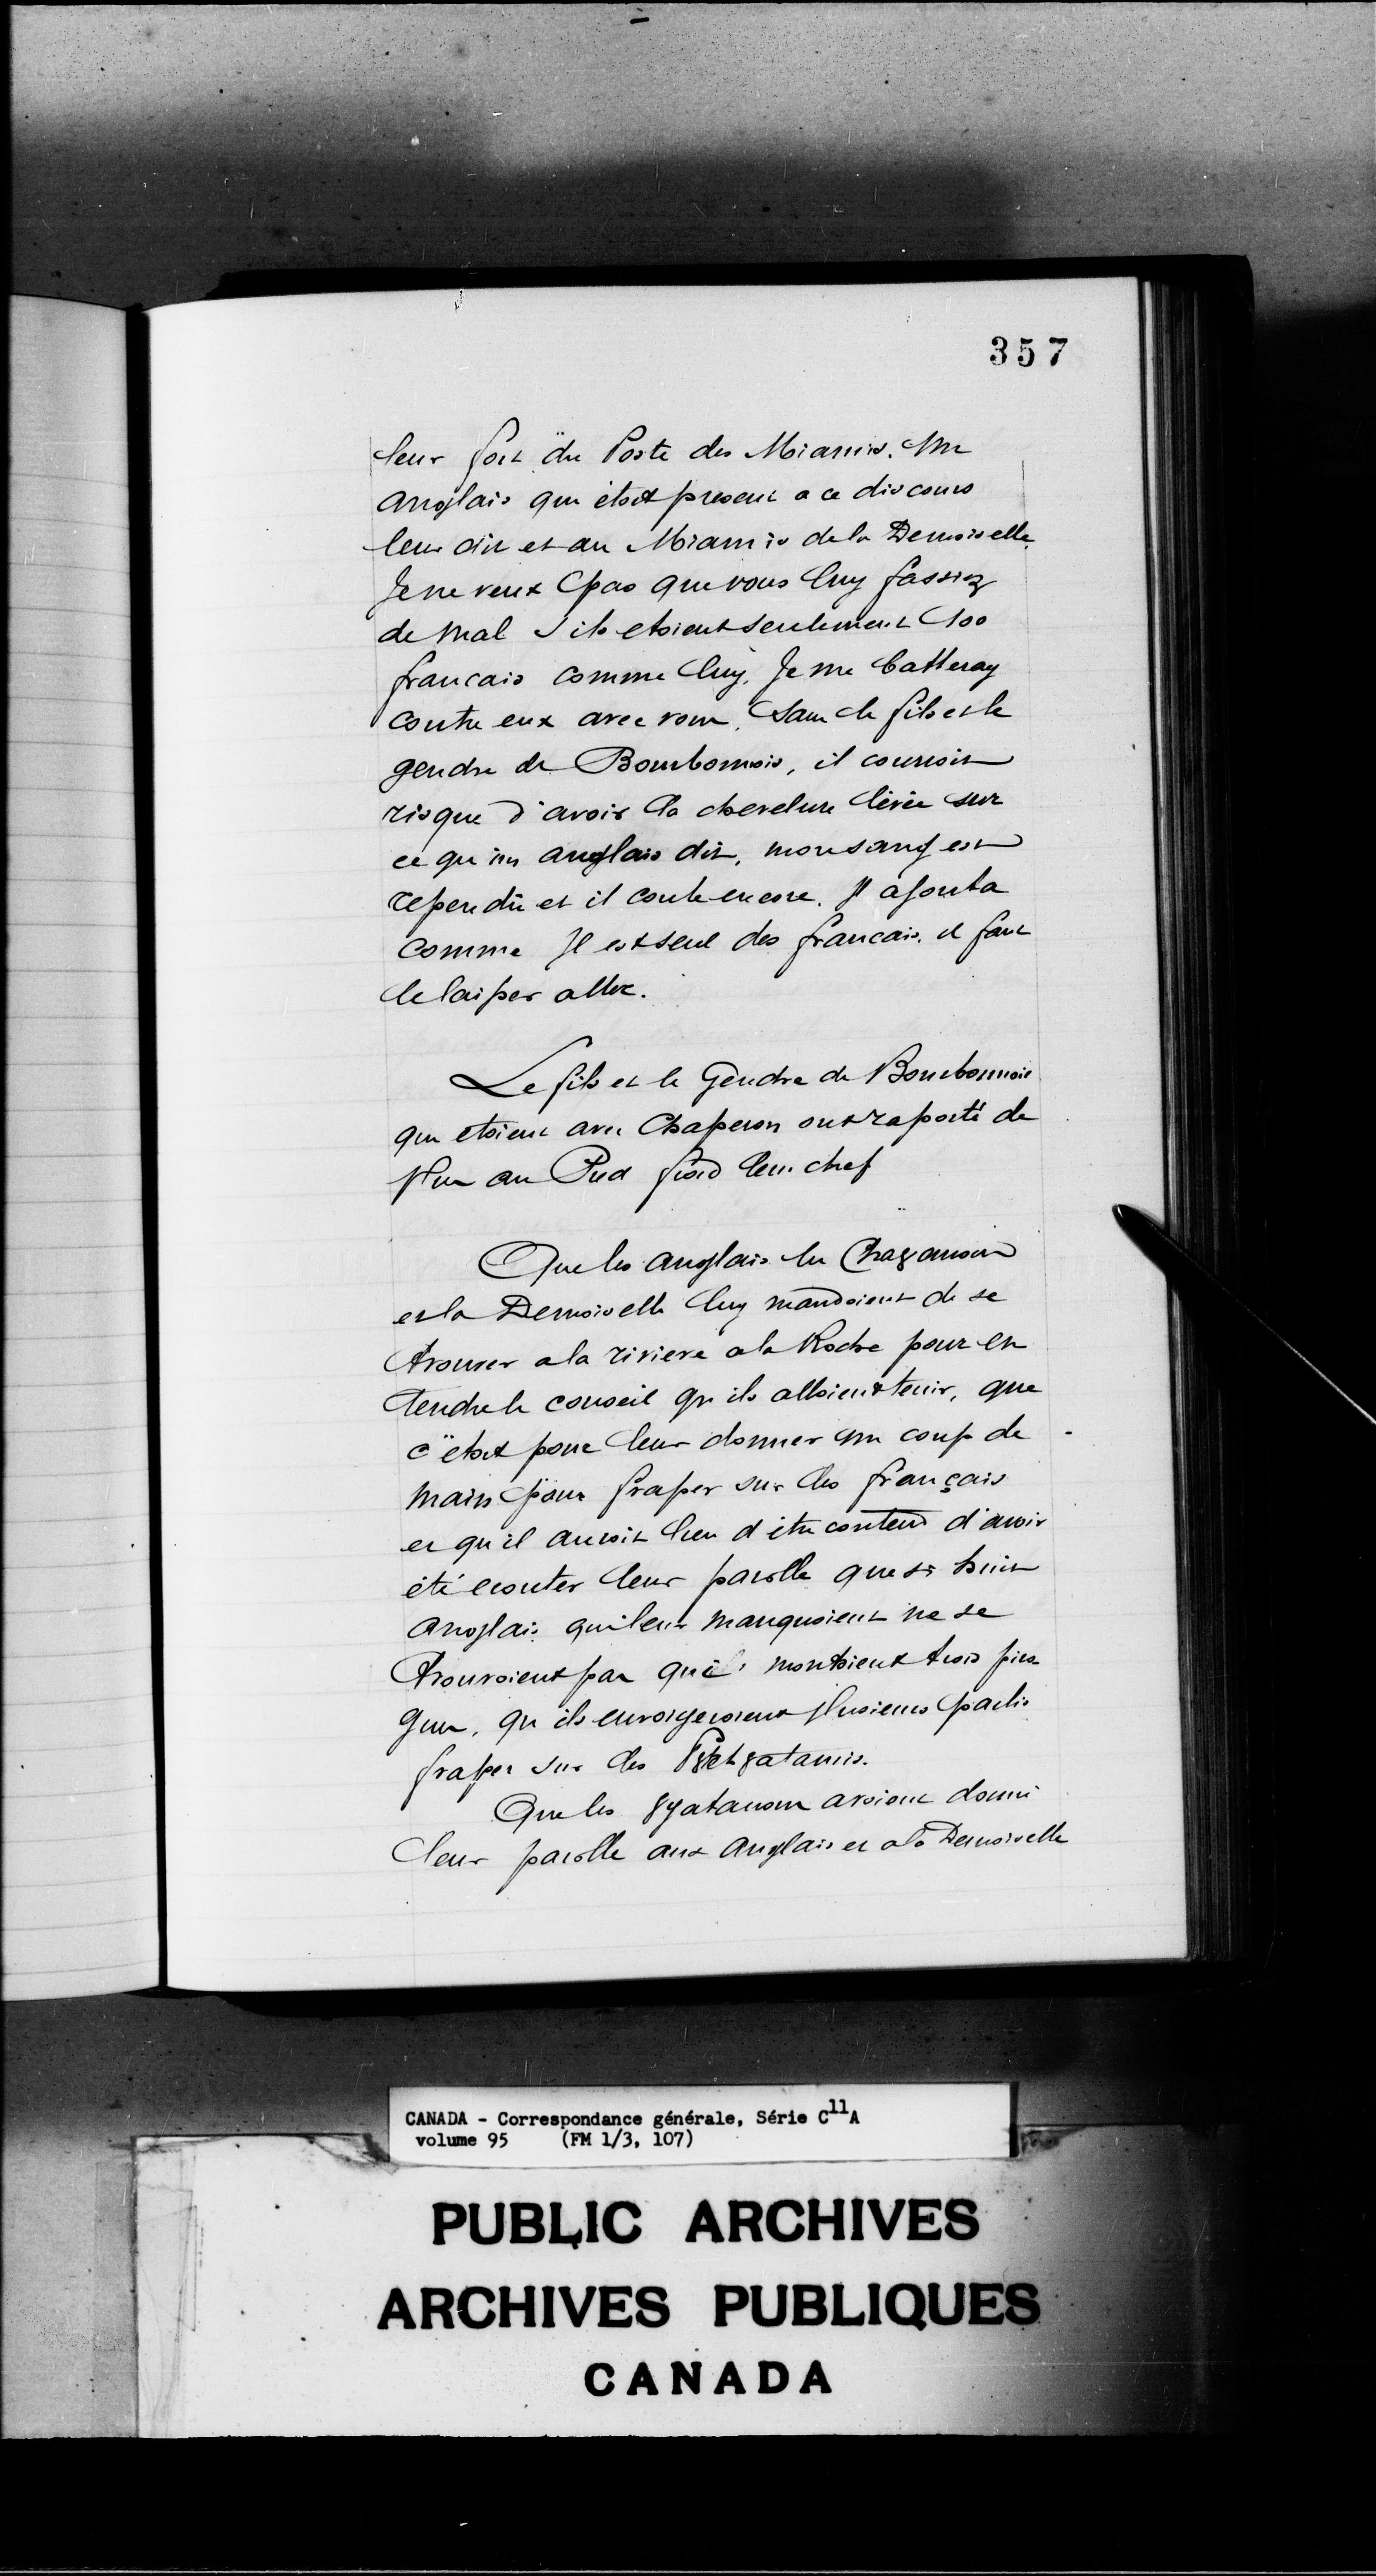 357
leur fort du Poste des Miamis. Un
anglais qui êtoit present a ce discours
leur dit et au Miamis de la Demoiselle.
Je ne veux pas que vous luy fassiez
de mal s'ils etoient seulement 100
francais comme luy. Je me batteray
contre eux avec vous. Sans le fils et le
gendre de Bourbonnois, il couroit
risque d'avoir la chevelure levée sur
ce qu'un anglais dit, mon sang est
rependû et il coule encore. Il ajouta
comme Il est seul des francais. il faut
le laisser aller.
Le fils et le Gendre de Bourbonnois
qui etoient avec Chaperon ont raporté de
plus au Pied froid leur chef
Que les anglais les Cha8anons
et la Demoiselle luy mandoient de se
trouver a la riviere a la Roche pour en
tendre le conseil qu'ils alloient tenir, que
c'ëtoit pour leur donner un coup de
main pour fraper sur les français
et qu'il auroit lieu d'être contend d'avoir
été ecouter leur parolle que si huit
anglais qui leur manquoient ne se
trouvoient pas qu'ils montoient trois piro
gues, qu'ils envoyeroient plusieurs partis
fraper sur les P8te8atamis.
Que les 8yatanons avoient donné
leur parolle aux anglais et a la Demoiselle
CANADA - Correspondance générale, Série C11A
volume 95 (FM 1/3, 107)
PUBLIC ARCHIVES
ARCHIVES PUBLIQUES
CANADA